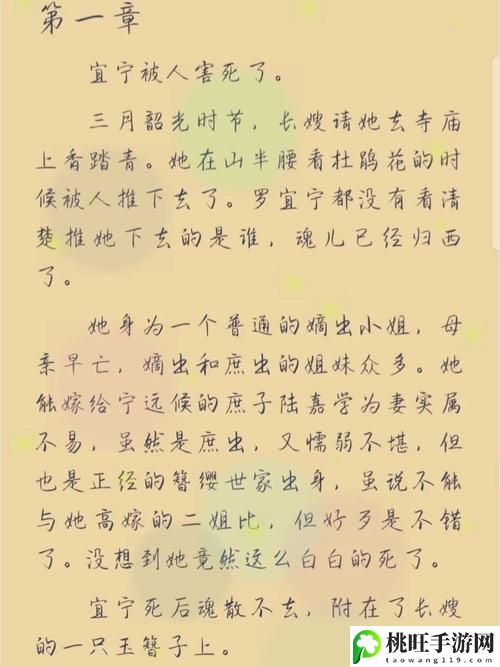 第一章
宜宁被人害死了。
三月韶光时节，长嫂请她去寺庙
上香踏青。她在山半腰看杜鹃花的时
候被人推下去了。罗宜宁都没有看清
楚推她下去的是谁，魂儿已经归西
了。
她身为一个普通的嫡出小姐，母
亲早亡，嫡出和庶出的姐妹众多。她
能嫁给宁远候的庶子陆嘉学为妻实属
不易，虽然是庶出，又懦弱不堪，但
也是正经的簪缨世家出身，虽说不能
与她高嫁的二姐比，但好歹是不错
了。没想到她竟然这么白白的死了。
宜宁死后魂散不去，附在了长嫂
的一只玉簪子上。
桃旺手游网
www.taowang119.com